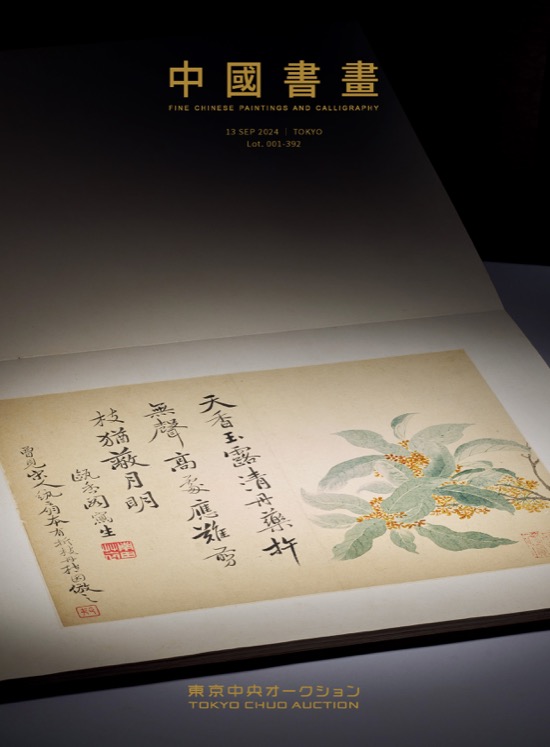 中國書畫
FINE CHINESE PAINTINGS AND CALLIGRAPHY
13 SEP 2024 | TOKYO
Lot. 001-392
天香玉露清丹藥杵
無聲高處應難剪
枝猶蔽月明
甌香閣寫生
曾見宋人紈扇本有折枝丹桂因倣之
東京中央オークション
TOKYO CHUO AUCTION